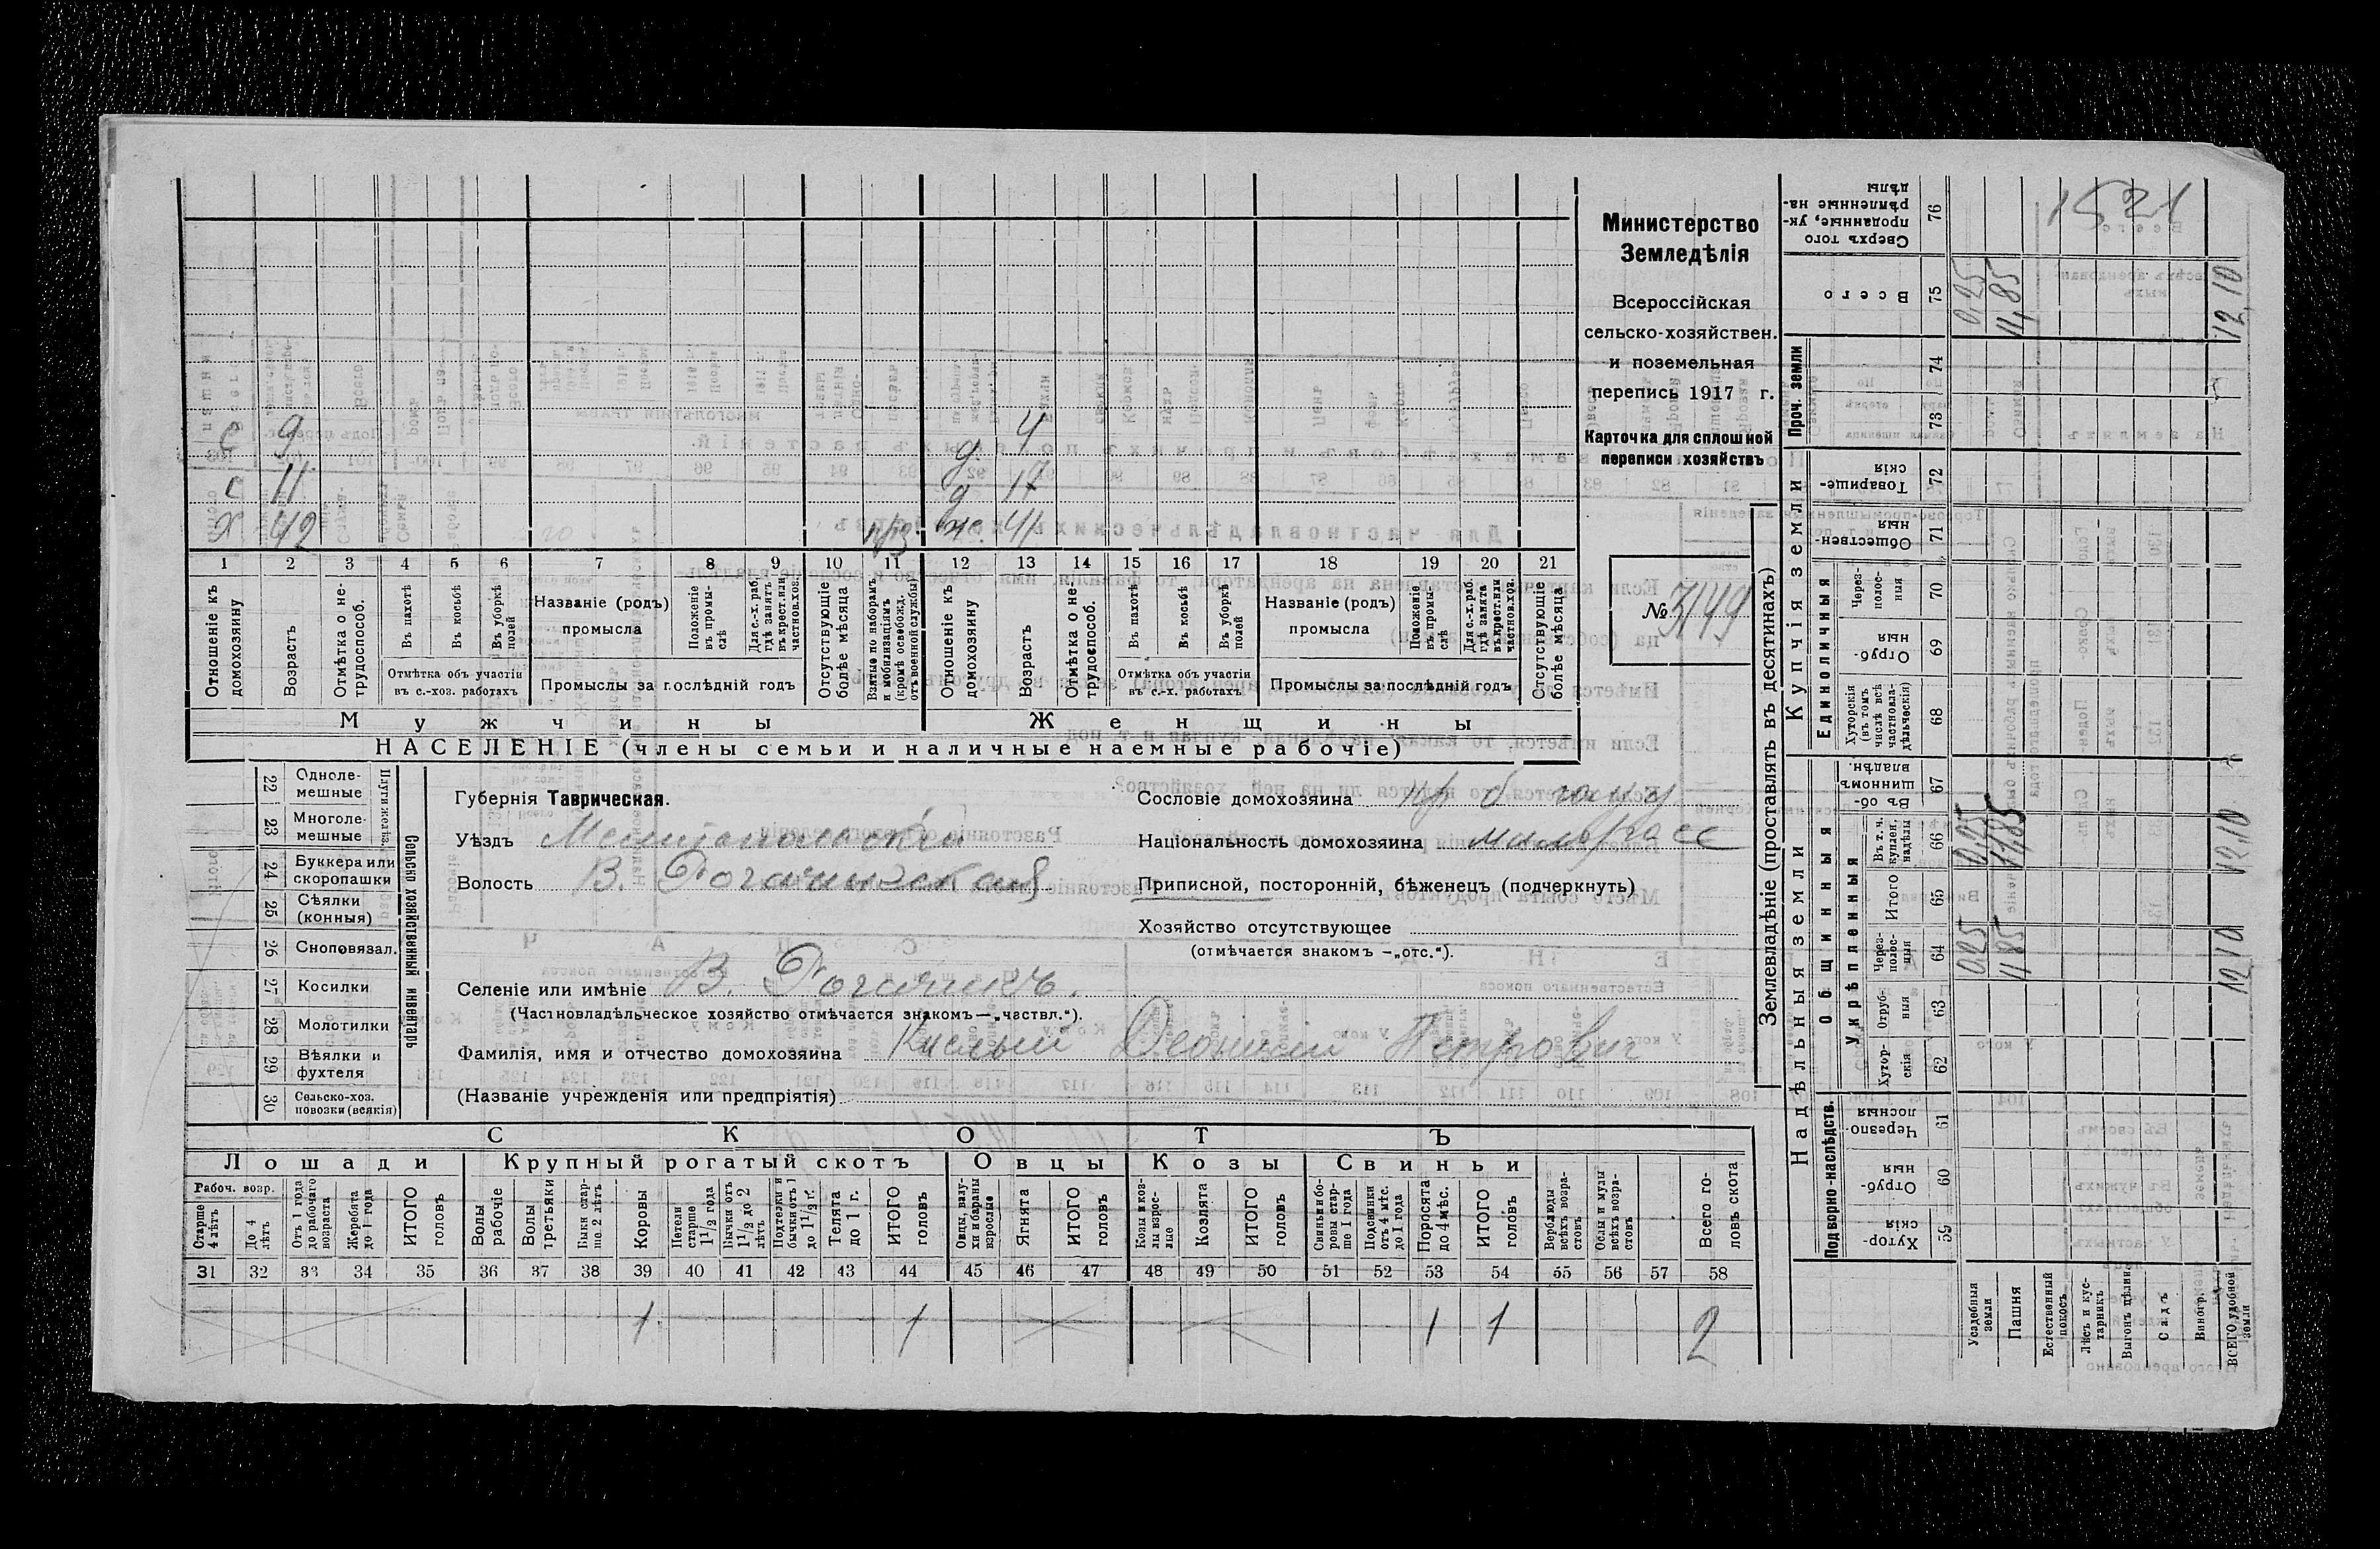 Министерство
Земледѣлія
Всероссійская
сельско-хозяйствен.
и поземельная
перепись 1917 г.
Карточка для сплошной
переписи хозяйствъ
№ 3149
1521
с 9
с 11
х 42
д 4
д 17
ж. 41
1 2 3 4 5 6 7 8 9 10 11 12 13 14 15 16 17 18 19 20 21
Отношеніе къ домохозяину
Возрастъ
Отмѣтка о не-трудоспособ.
Въ пахотѣ
Въ косьбѣ
Въ уборкѣ полей
Отмѣтка объ участіи въ с.-хоз. работахъ
Названіе (родъ) промысла
Положеніе въ промы-слѣ
Для с.-х. раб. гдѣ занятъ въ крест. или частнов. хоз.
Промыслы за послѣдній годъ
Отсутствующіе болѣе мѣсяца
Взятые по наборамъ и мобилизаціямъ (кромѣ освобожд. отъ военной службы)
Отношеніе къ домохозяину
Возрастъ
Отмѣтка о не-трудоспособ.
Въ пахотѣ
Въ косьбѣ
Въ уборкѣ полей
Отмѣтка объ участіи въ с.-х. работахъ
Названіе (родъ) промысла
Положеніе въ промы-слѣ
Для с.-х. раб. гдѣ занята въ крест. или частнов. хоз.
Промыслы за послѣдній годъ
Отсутствующіе болѣе мѣсяца
Мужчины
Женщины
НАСЕЛЕНІЕ (члены семьи и наличные наемные рабочіе)
Сельско хозяйственный инвентарь
Плуги желѣз.
22 Одноле-мешные
23 Многоле-мешные
24 Буккера или скоропашки
25 Сѣялки (конныя)
26 Сноповязал.
27 Косилки
28 Молотилки
29 Вѣялки и фухтеля
30 Сельско-хоз. повозки (всякія)
Губернія Таврическая.
Уѣздъ Мелитопольскій
Волость В. Рогачикская
Сословіе домохозяина
Національность домохозяина малоросс
Приписной, посторонній, бѣженецъ (подчеркнуть)
Хозяйство отсутствующее
(отмѣчается знакомъ —„отс.“).
Селеніе или имѣніе В. Рогачикъ.
(Частновладѣльческое хозяйство отмѣчается знакомъ—„частвл.“).
Фамилія, имя и отчество домохозяина Кислый Деонисій Петрович
(Названіе учрежденія или предпріятія)
СКОТЪ
Лошади
Крупный рогатый скотъ
Овцы
Козы
Свиньи
Рабоч. возр.
Старше 4 лѣтъ
До 4 лѣтъ
Отъ 1 года до рабочаго возраста
Жеребята до 1 года
ИТОГО головъ
Волы рабочіе
Волы третьяки
Быки стар-ше 2 лѣтъ
Коровы
Нетели старше 1½ года
Бычки отъ 1½ до 2 лѣтъ
Подтелки и бычки отъ 1 до 1½ г.
Телята до 1 г.
ИТОГО головъ
Овцы, валу-хи и бараны взрослые
Ягнята
ИТОГО головъ
Козы и коз-лы взрос-лые
Козлята
ИТОГО головъ
Свиньи и бо-ровы стар-ше 1 года
Подсвинки отъ 4 мѣс. до 1 года
Поросята до 4 мѣс.
ИТОГО головъ
Верблюды всѣхъ возра-стовъ
Ослы и мулы всѣхъ возра-стовъ
Всего го-ловъ скота
31 32 33 34 35 36 37 38 39 40 41 42 43 44 45 46 47 48 49 50 51 52 53 54 55 56 57 58
1 1 1 1 2
Землевладѣніе (проставлять въ десятинахъ)
Надѣльныя земли
Купчія земли
Проч. земли
Подворно-наслѣдств.
Общинныя
Укрѣпленныя
Единоличныя
Сверхъ того проданные, ук-рѣпленные на-дѣлы 76
Всего 75
74
73
Товарище-скія 72
Обществен-ныя 71
Через-полос-ныя 70
Отруб-ныя 69
Хуторскія (въ томъ числѣ всѣ частновла-дѣльческія) 68
Въ об-щинномъ владѣн. 67
Въ т. ч. куплен. надѣлы 66
Итого 65
Через-полос-ныя 64
Отруб-ныя 63
Хутор-скія 62
Черезпо-лосныя 61
Отруб-ныя 60
Хутор-скія 59
Усадебныя земли
Пашня
Естественный покосъ
Лѣсъ и кус-тарникъ
Выгонъ цѣлин.
Садъ
Виногр.
ВСЕГО удобной земли
0,25 11,85 12,10
0,25 11,85 12,10
0,25 11,85 12,10